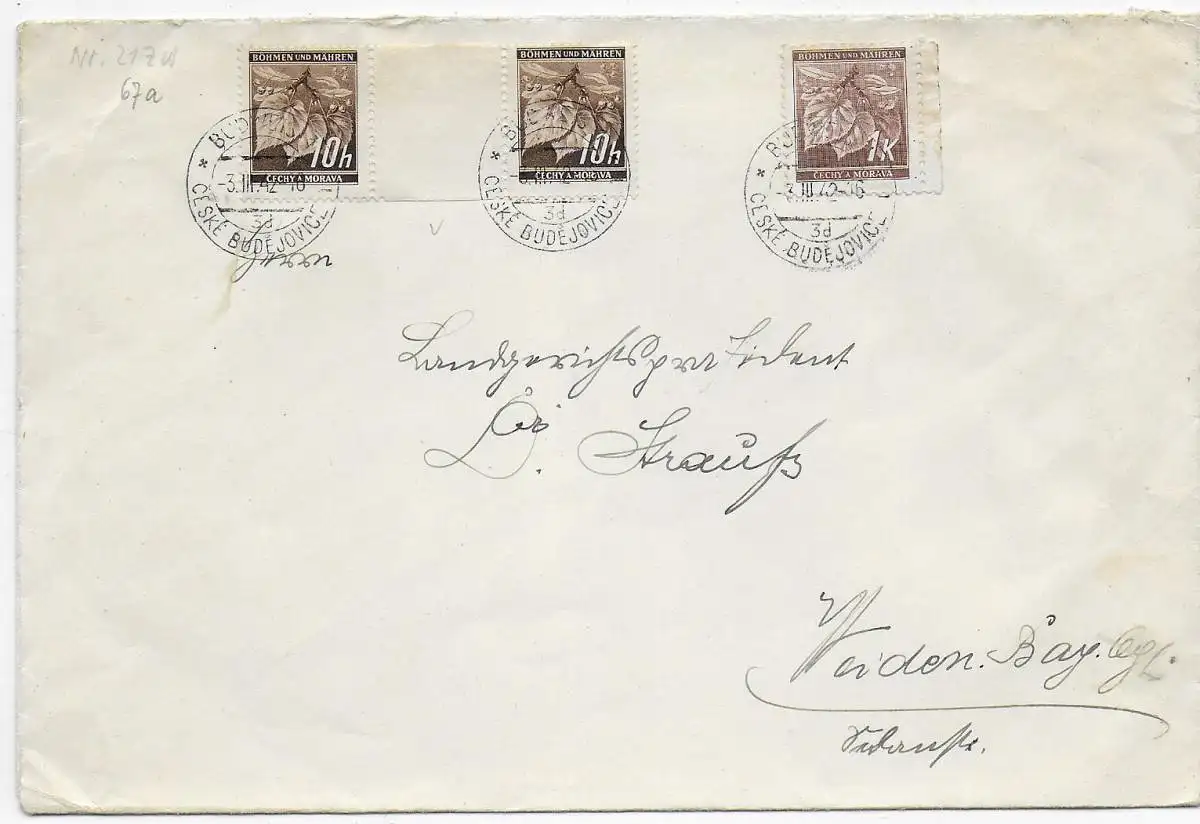 Nr. 217 w
67a
BÖHMEN UND MÄHREN
10h
ČECHY A MORAVA
BÖHMEN UND MÄHREN
10h
ČECHY A MORAVA
BÖHMEN UND MÄHREN
1K
ČECHY A MORAVA
-3.III.42-16
3d
ČESKÉ BUDĚJOVICE
3d
ČESKÉ BUDĚJOVICE
-3.III.42-16
3d
ČESKÉ BUDĚJOVICE
Herrn
Landgerichtspräsident
Dr. Strauß
Weiden. Bay.